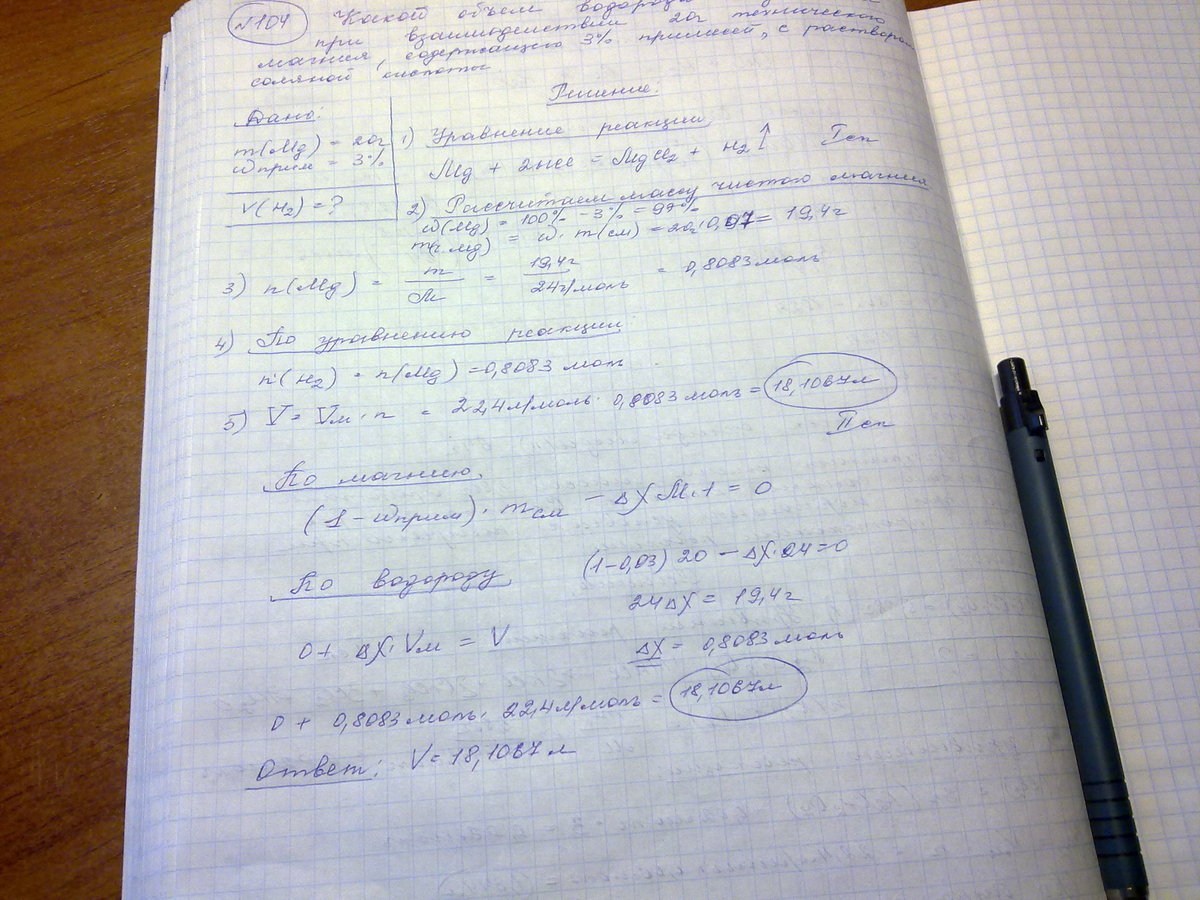 №104 Какой объем водорода
при взаимодействии 20г технического
магния, содержащего 3% примесей, с раствором
соляной кислоты
Решение:
Дано:
m(Mg) = 20г
ωприм = 3%
V(H₂) = ?
1) Уравнение реакции
Mg + 2HCl = MgCl₂ + H₂↑ I сп
2) Рассчитаем массу чистого магния
ω(Mg) = 100% - 3% = 97%
m(Mg) = ω · m(см) = 20г · 0,97 = 19,4г
3) n(Mg) = m/M = 19,4г/24г/моль = 0,8083 моль
4) По уравнению реакции:
n(H₂) = n(Mg) = 0,8083 моль
5) V = Vм · n = 22,4л/моль · 0,8083 моль = 18,1067л
II сп
По магнию
(1 - ωприм) · mсм - ΔX · M · 1 = 0
(1-0,03) 20 - ΔX · 24 = 0
24ΔX = 19,4г
ΔX = 0,8083 моль
По водороду
0 + ΔX · Vм = V
0 + 0,8083 моль · 22,4л/моль = 18,1067л
Ответ: V = 18,1067 л